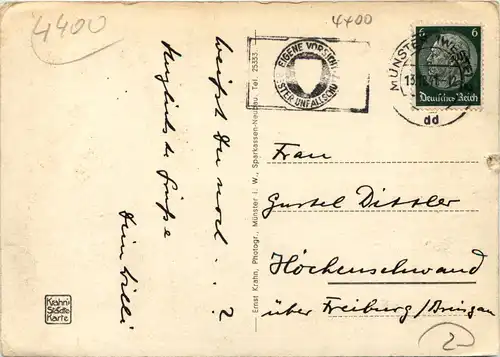 4400
4400
EIGENE VORSICHT
BESTER UNFALLSCHUTZ
MÜNSTER (WESTF)
dd
6 6
Deutsches Reich
Weißt Du noch . . ?
Herzliche Grüße
Dein Willi
Ernst Krahn, Photogr., Münster i. W., Sparkassen-Neubau, Tel. 25353
Frau
Gustel Dittler
Höchenschwand
über Freiburg/Breisgau
Krahn-
Städte
Karte
2